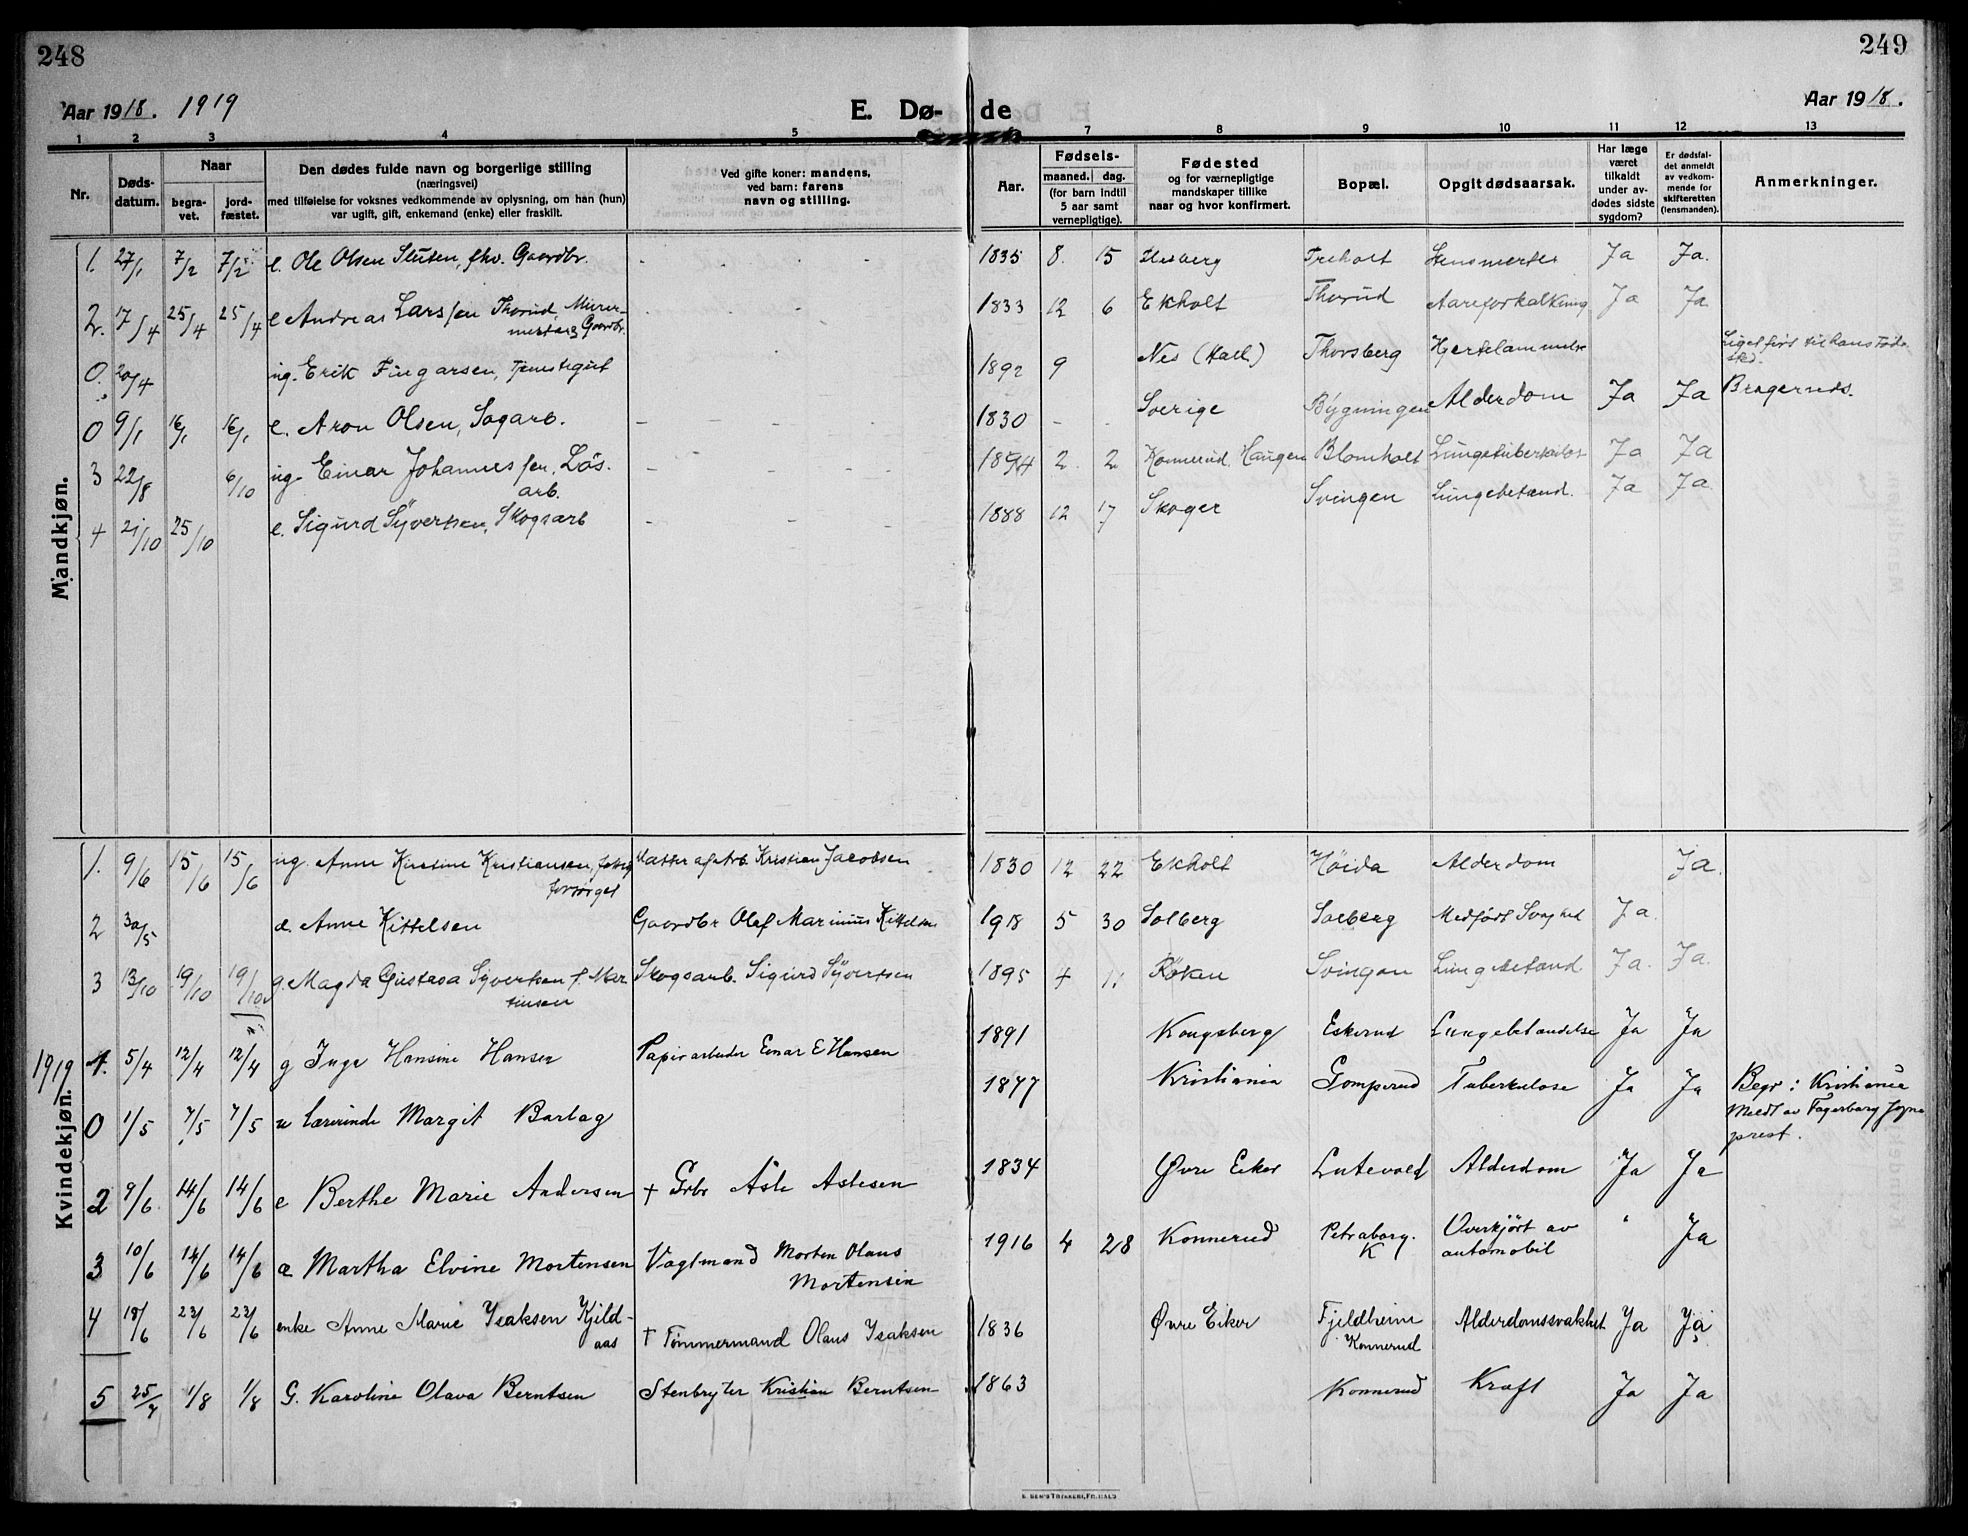 248
249
Aar 1918. 1919
E. Dø-
de
Aar 1918.
1 2 3 4 5 7 8 9 10 11 12 13
Nr.
Døds-
datum.
Naar
begra-
vet.
jord-
fæstet.
Den dødes fulde navn og borgerlige stilling
(næringsvei)
med tilføielse for voksnes vedkommende av oplysning, om han (hun)
var ugift, gift, enkemand (enke) eller fraskilt.
Ved gifte koner: mandens,
ved barn: farens
navn og stilling.
Aar.
Fødsels-
maaned. dag.
(for barn indtil
5 aar samt
vernepligtige).
Fødested
og for værnepligtige
mandskaper tillike
naar og hvor konfirmert.
Bopæl.
Opgit dødsaarsak.
Har læge
været
tilkaldt
under av-
dødes sidste
sygdom?
Er dødsfal-
det anmeldt
av vedkom-
mende for
skifteretten
(lensmanden).
Anmerkninger.
Mandkjøn.
1. 27/1 7/2 7/2 e. Ole Olsen fhv. Gaardbr. - - - 1835 8. 15 Treholt Ja Ja.
2. 17/4 25/4 25/4 e Andreas Larssen Thorud, Murer-
mester, Gaardbr. 1833 12 6 Ekholt Thorud Aareforkalkning Ja Ja
0. 20/4 ug. Erik Fingarsen, Tjenstegut 1892 9 Nes (Hall.) Thorsberg Hjertelammelse Liget ført til hans Føde-
sted
0 9/1 16/1 16/1 e. Aron Olsen, Sagarb. - - - - 1830 - - Sverige Bygningen Alderdom Ja Ja Bragernes.
3 22/8 6/10 ug. Einar Johannessen, Løs.
arb. - - - - 1894 2. 2 Konnerud, Haugen Blomholt Lungetuberkulos Ja Ja
4 21/10 25/10 e. Sigurd Syvertsen, Skogsarb - - - - 1888 12 17 Skoger Svingen Lungebetænd. Ja Ja.
1. 9/6 15/6 15/6 ug. Anne Kirstine Kristiansen,
forsørget Datter af Arb. Kristian Jacobsen 1830 12 22 Ekholt Høida Alderdom Ja.
2 30/5 d. Anne Kittelsen Gaardbr Olef Marinius Kittelsen 1918 5 30 Solberg Solberg Medfødt Svaghed Ja.
3 13/10 19/10 19/10 g. Magda Gustava Syvertsen f. Mar-
tinsen Skogsarb. Sigurd Syvertsen 1895 4 11 Røken Svingen Lungebetænd. Ja. Ja.
1919
Kvindekjøn.
1. 5/4 12/4 12/4 g Inga Hansine Hansen Papirarbeider Einar E Hansen 1891 Kongsberg Eskerud Lungebetændelse Ja Ja
0 1/5 7/5 7/5 u Lærerinde Margit Barlag 1877 Kristiania Gomperud Tuberkulose Ja Ja Begr: Kristiania
Meldt av Fagerborg Sogne
prest.
2 9/6 14/6 14/6 e Berthe Marie Andersen + Grbr Asle Aslesen 1834 Øvre Eiker Lutevold Alderdom Ja Ja
3 10/6 14/6 14/6 d Martha Elvine Mortensen Vagtmand Morten Olaus
Mortensen 1916 4 28 Konnerud Petraborg.
K Overkjørt av
automobil " Ja
4 18/6 23/6 23/6 enke Anne Marie Isaksen Kjeld-
aas + Tømmermand Olaus Isaksen 1836 Øvre Eiker Fjeldheim
Konnerud Alderdomssvakhet Ja Ja
5 25/7 1/8 1/8 G. Karoline Olava Berntsen Stenbryter Kristian Berntsen 1863 Konnerud Kræft Ja Ja